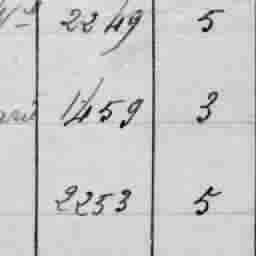 2249 5
1459 3
2253 5